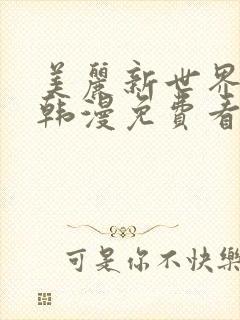 美麗新世界
韩漫免費看
可是你不快樂